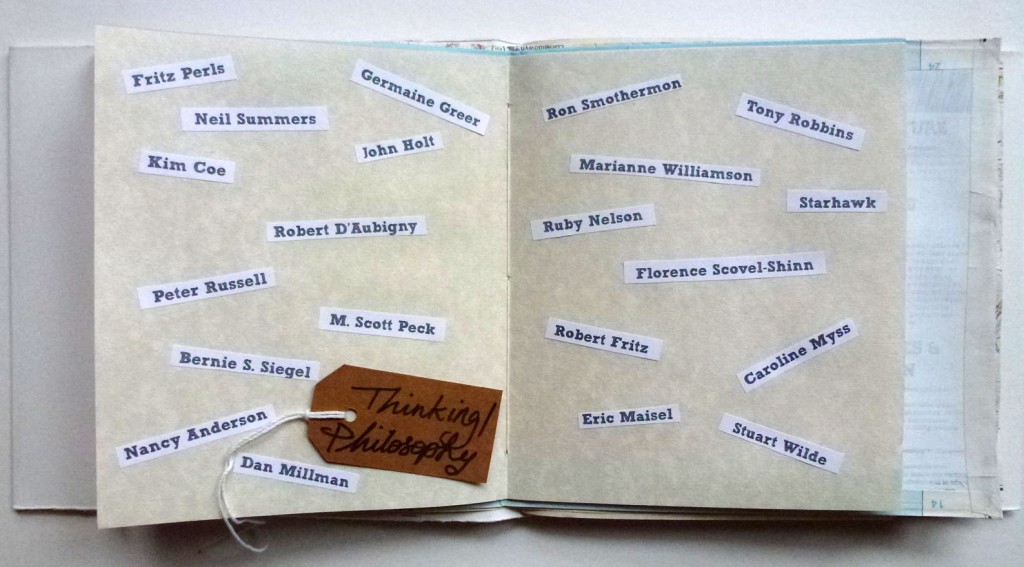 Fritz Perls
Germaine Greer
Neil Summers
John Holt
Kim Coe
Robert D'Aubigny
Peter Russell
M. Scott Peck
Bernie S. Siegel
Thinking/
Philosophy
Nancy Anderson
Dan Millman
Ron Smothermon
Tony Robbins
Marianne Williamson
Starhawk
Ruby Nelson
Florence Scovel-Shinn
Robert Fritz
Caroline Myss
Eric Maisel
Stuart Wilde
24
14